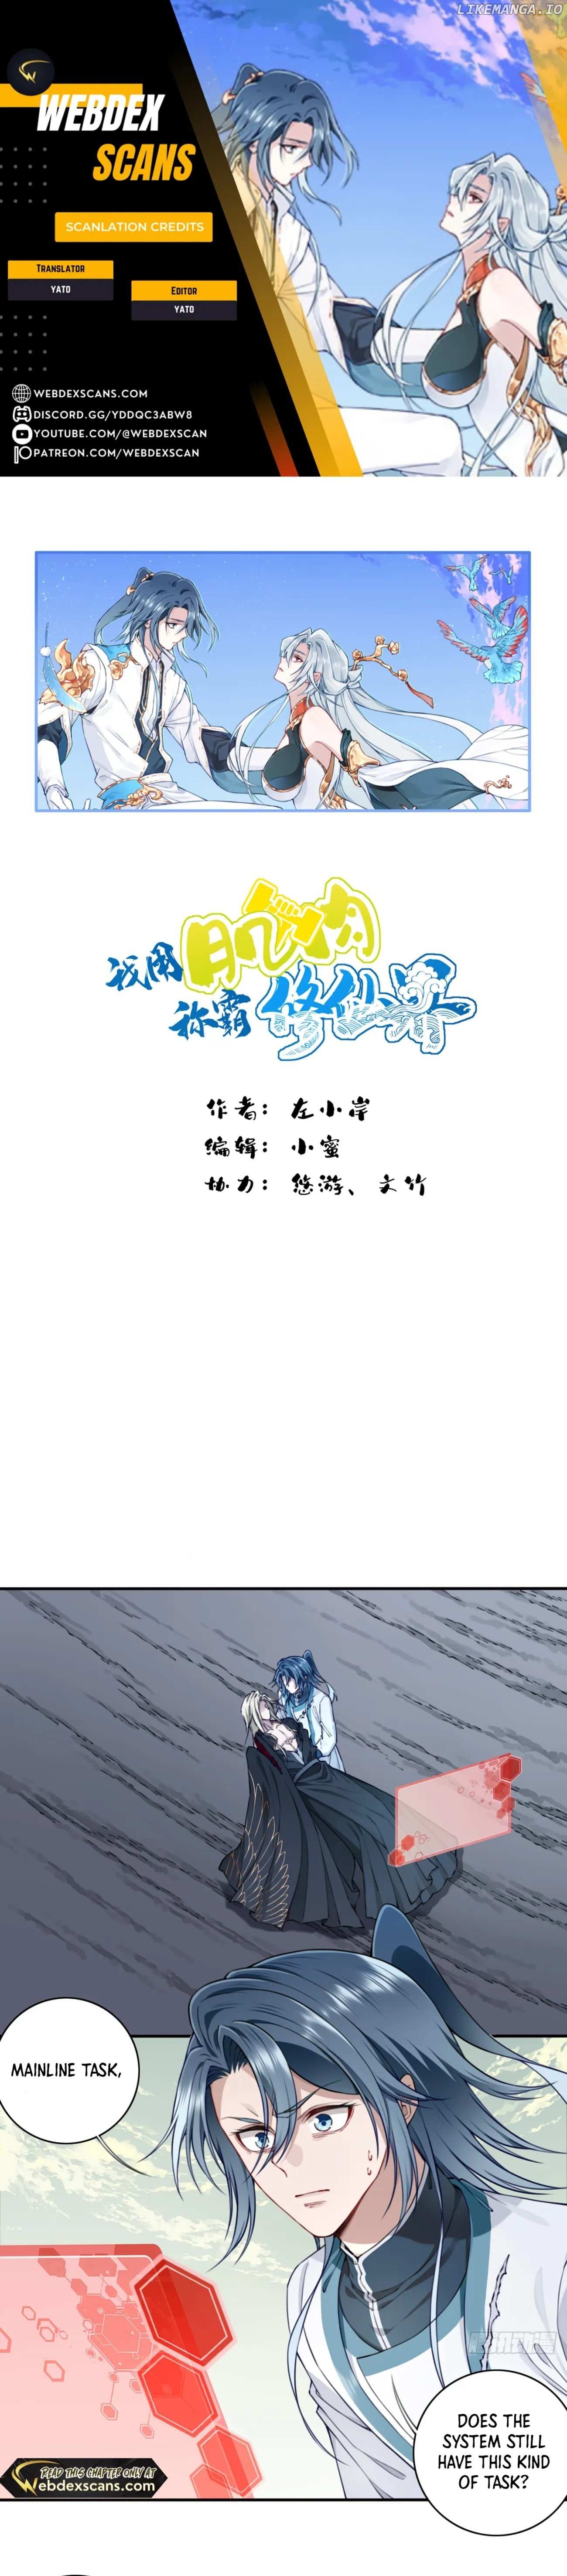 LIKEMANGA.IO
WEBDEX
SCANS
SCANLATION CREDITS
TRANSLATOR
YATO
EDITOR
YATO
WEBDEXSCANS.COM
DISCORD.GG/YDDQC3ABW8
YOUTUBE.COM/@WEBDEXSCAN
PATREON.COM/WEBDEXSCAN
我用肌肉
称霸修仙界
作者：左小岸
编辑：小蜜
协力：悠游、文竹
MAINLINE TASK,
DOES THE
SYSTEM STILL
HAVE THIS KIND
OF TASK?
READ THIS CHAPTER ONLY AT
Webdexscans.com